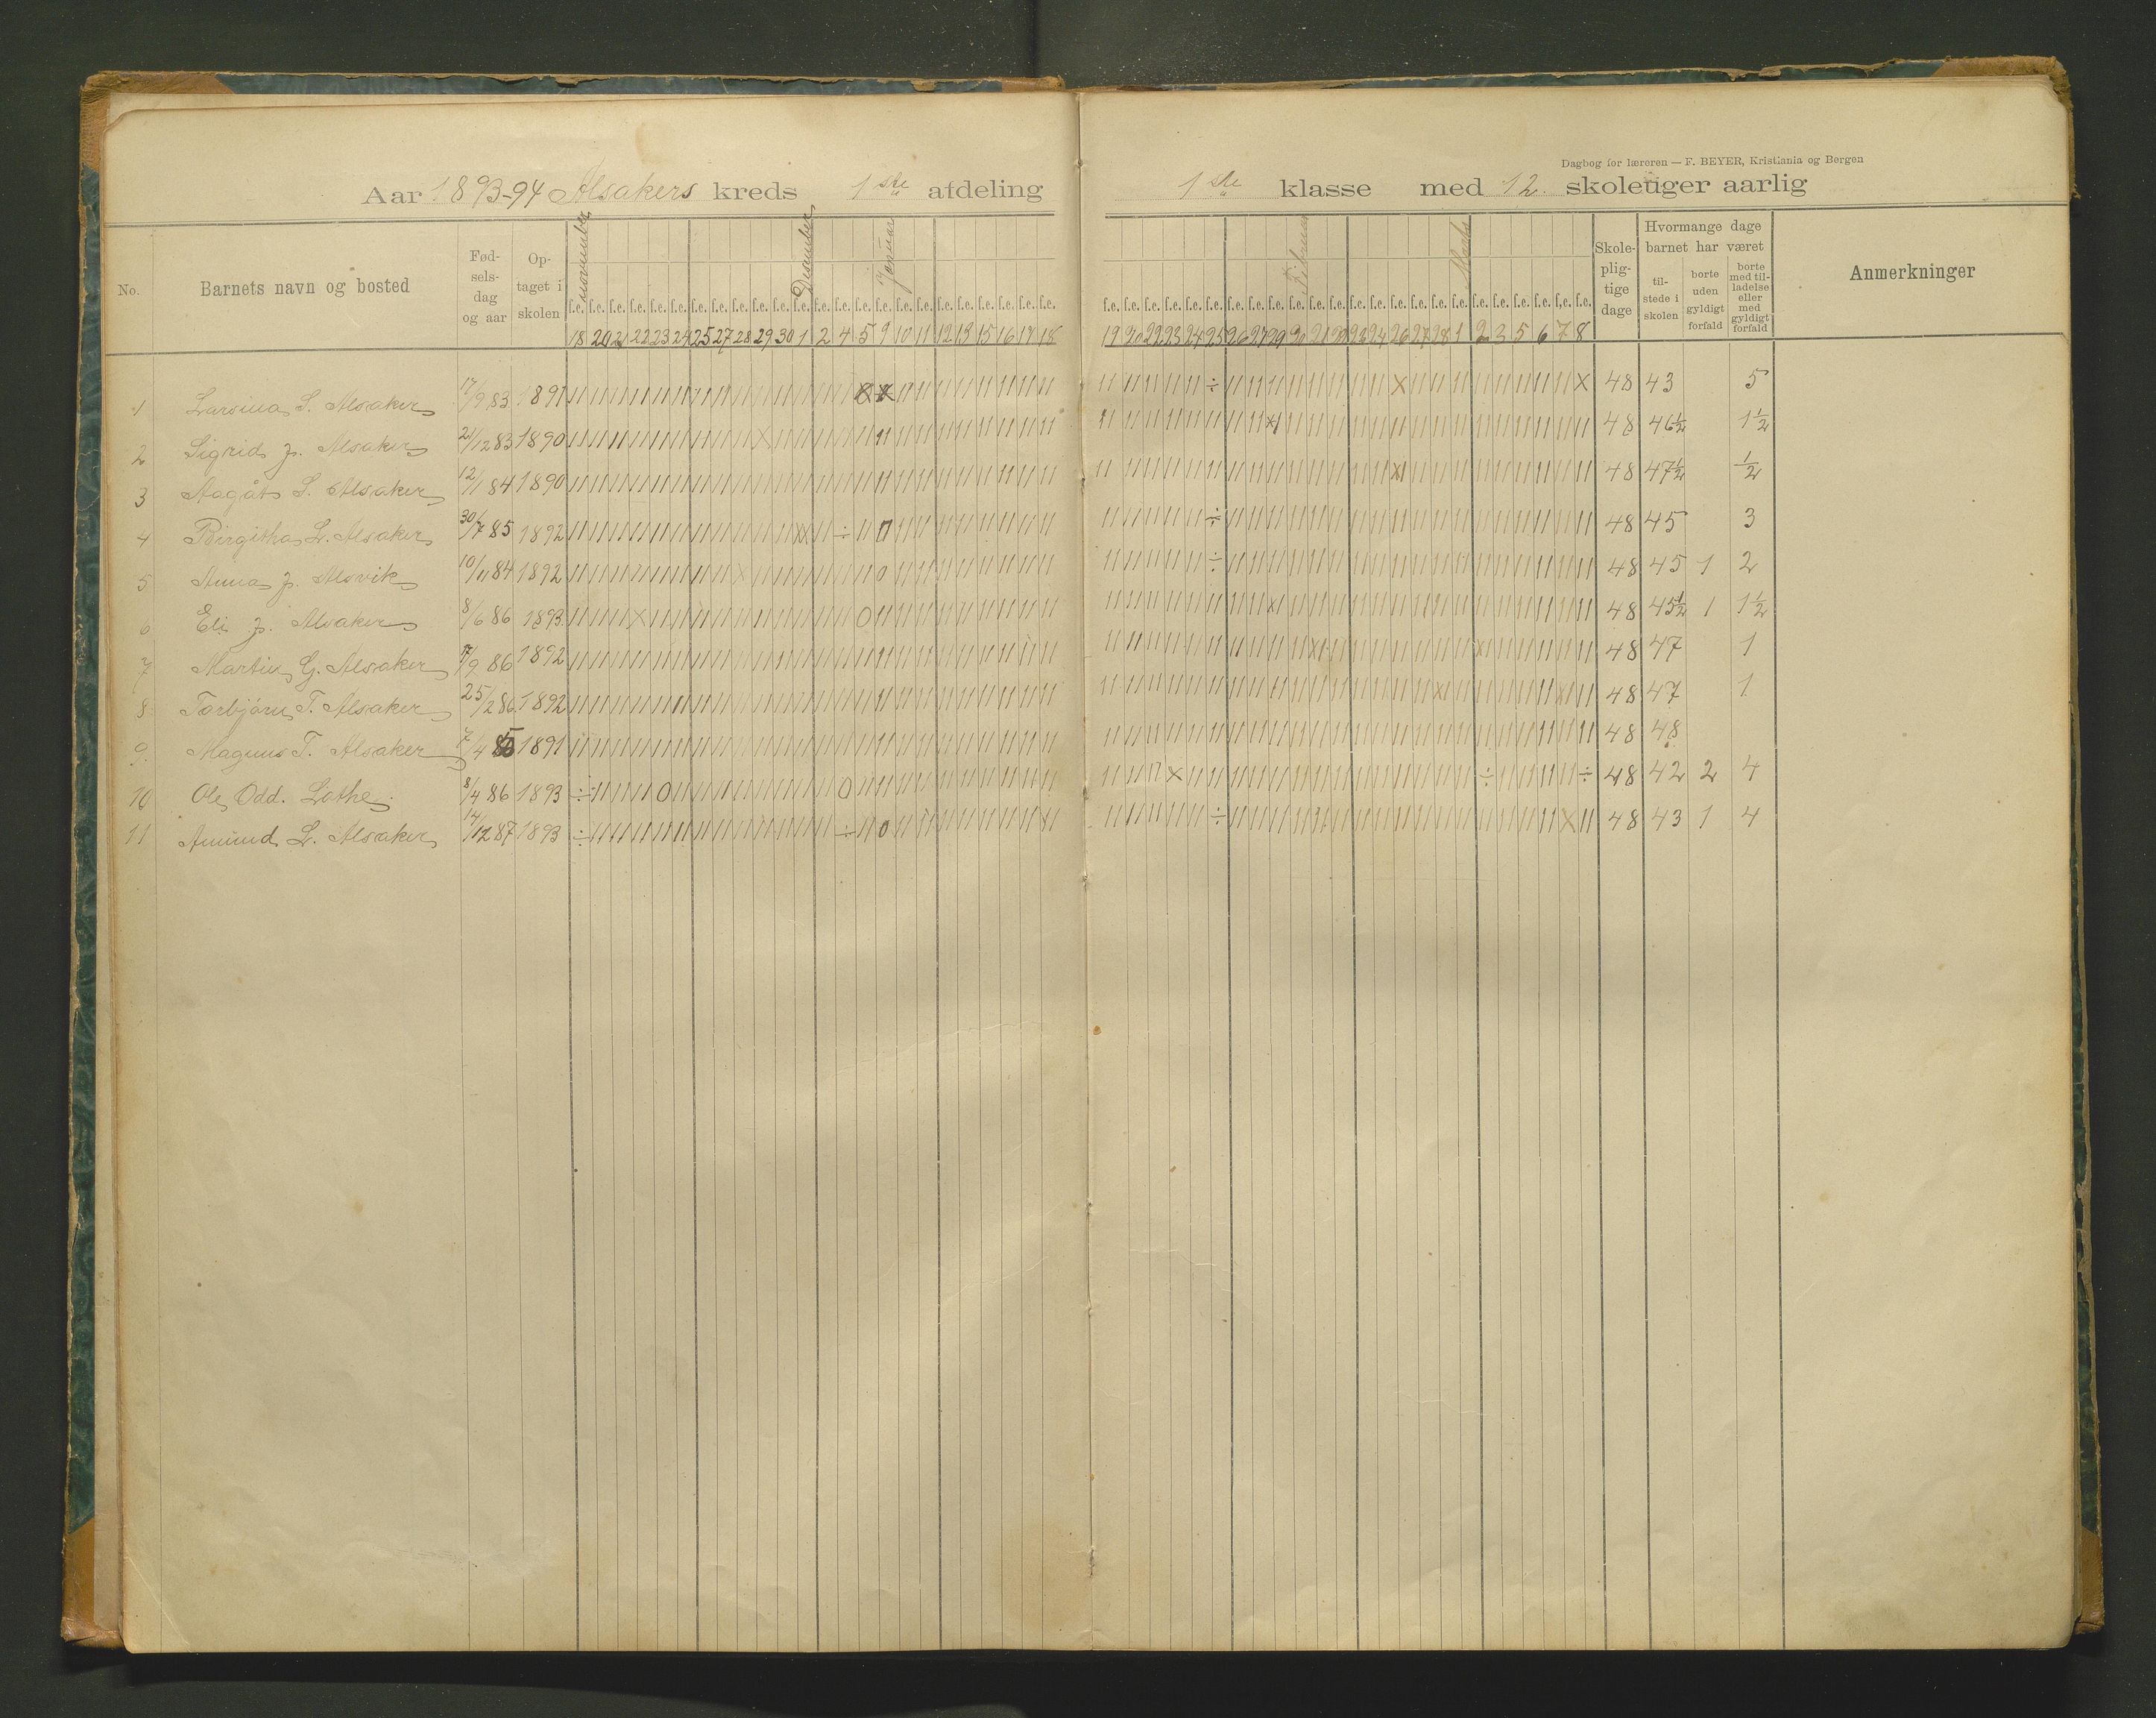 Dagbog for læreren — F. BEYER, Kristiania og Bergen
Aar 1893-94 Alsakers kreds 1ste afdeling 1ste klasse med 12 skoleuger aarlig
No. Barnets navn og bosted Fødselsdag og aar Optaget i skolen november Desember Januar Februar Marts Skolepligtige dage Hvormange dage barnet har været Anmerkninger
tilstede i skolen borte uden gyldigt forfald borte med tilladelse eller med gyldigt forfald
f.e. f.e. f.e. f.e. f.e. f.e. f.e. f.e. f.e. f.e. f.e. f.e. f.e. f.e. f.e. f.e. f.e. f.e. f.e. f.e. f.e. f.e. f.e. f.e. f.e. f.e. f.e. f.e. f.e. f.e. f.e. f.e. f.e. f.e. f.e. f.e. f.e. f.e. f.e. f.e. f.e. f.e. f.e. f.e. f.e. f.e. f.e. f.e.
18 20 21 22 23 24 25 27 28 29 30 1 2 4 5 9 10 11 12 13 15 16 17 18 19 20 22 23 24 25 26 27 29 20 21 22 23 24 26 27 28 1 2 3 5 6 7 8
1 Larsina S. Alsaker 17/9 83 1891 48 43 5
2 Sigrid J. Alsaker 21/12 83 1890 48 46½ 1½
3 Aagåt S. Alsaker 12/1 84 1890 48 47½ ½
4 Birgitha L. Alsaker 30/7 85 1892 48 45 3
5 Anna J. Alsvik 10/11 84 1892 48 45 1 2
6 Eli J. Alsaker 8/6 86 1893 48 45½ 1 1½
7 Martin G. Alsaker 17/9 86 1892 48 47 1
8 Torbjørn T. Alsaker 25/2 86 1892 48 47 1
9. Magnus T. Alsaker 7/4 85 1891 48 48
10 Ole Odd. Lothe 8/4 86 1893 48 42 2 4
11 Amund L. Alsaker 14/12 87 1893 48 43 1 4